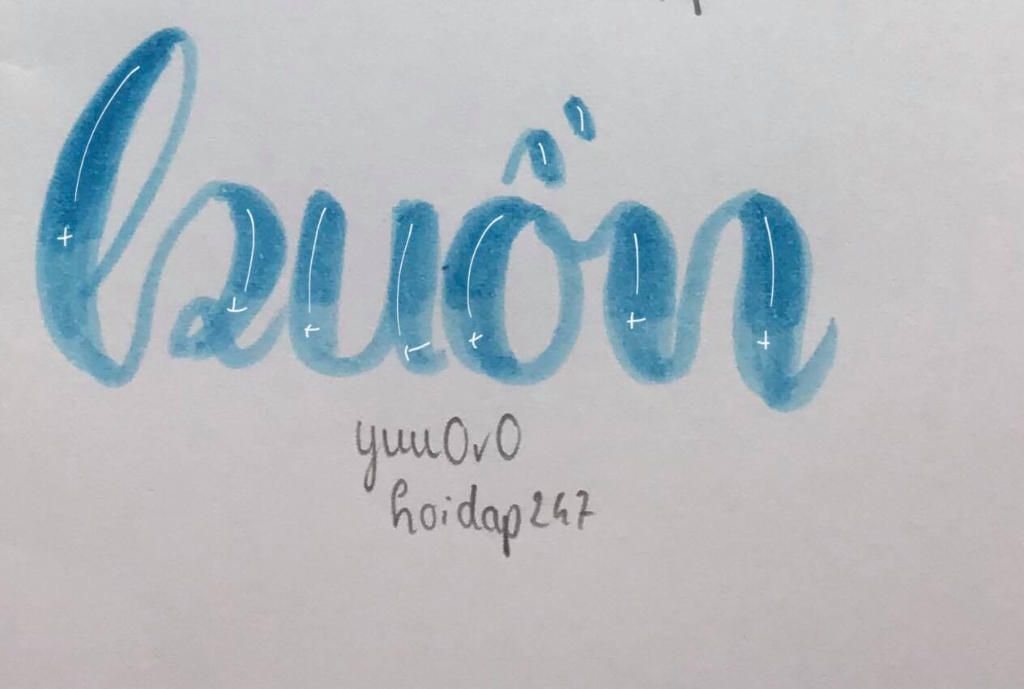 buồn
yuu0v0
hoidap247